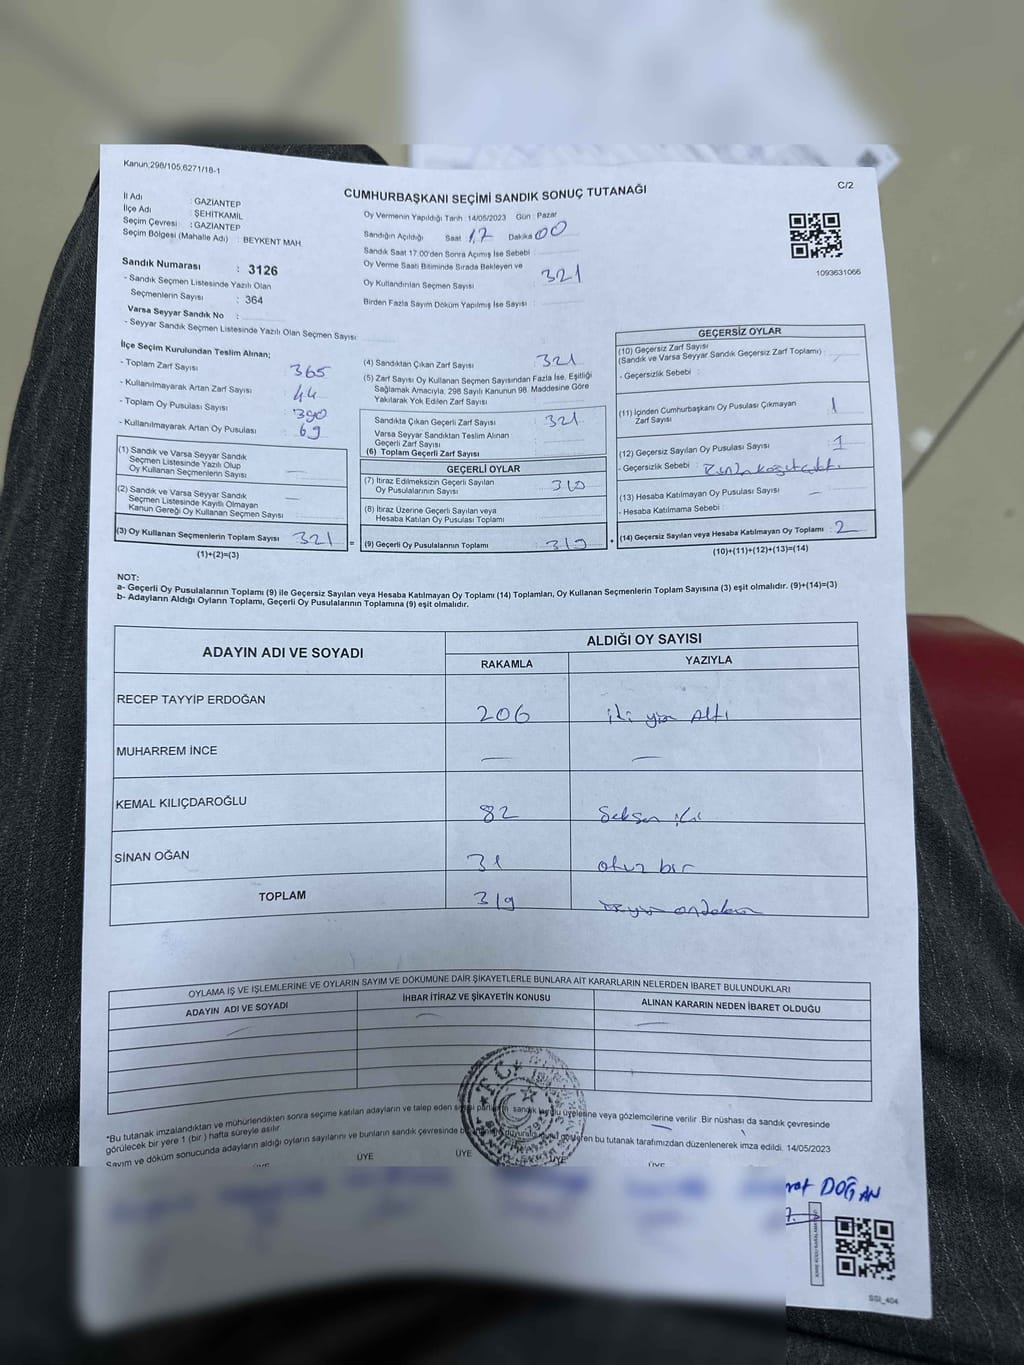 Kanun,298/105,6271/18-1
C/2
CUMHURBAŞKANI SEÇİMİ SANDIK SONUÇ TUTANAĞI
İl Adı : GAZİANTEP
İlçe Adı : ŞEHİTKAMİL
Seçim Çevresi : GAZİANTEP
Seçim Bölgesi (Mahalle Adı) : BEYKENT MAH.
Sandık Numarası : 3126
- Sandık Seçmen Listesinde Yazılı Olan
Seçmenlerin Sayısı : 364
Varsa Seyyar Sandık No :
- Seyyar Sandık Seçmen Listesinde Yazılı Olan Seçmen Sayısı
Oy Vermenin Yapıldığı Tarih :14/05/2023 Gün : Pazar
Sandığın Açıldığı Saat 17 Dakika 00
Sandık Saat 17:00'den Sonra Açımış İse Sebebi
Oy Verme Saati Bitiminde Sırada Bekleyen ve
Oy Kullandırılan Seçmen Sayısı 321
Birden Fazla Sayım Döküm Yapılmış İse Sayısı
1093631066
İlçe Seçim Kurulundan Teslim Alınan;
- Toplam Zarf Sayısı 365
- Kullanılmayarak Artan Zarf Sayısı 44
- Toplam Oy Pusulası Sayısı 390
- Kullanılmayarak Artan Oy Pusulası 69
(1) Sandık ve Varsa Seyyar Sandık
Seçmen Listesinde Yazılı Olup
Oy Kullanan Seçmenlerin Sayısı
(2) Sandık ve Varsa Seyyar Sandık
Seçmen Listesinde Kayıtlı Olmayan
Kanun Gereği Oy Kullanan Seçmen Sayısı
(3) Oy Kullanan Seçmenlerin Toplam Sayısı 321
(1)+(2)=(3)
(4) Sandıktan Çıkan Zarf Sayısı 321
(5) Zarf Sayısı Oy Kullanan Seçmen Sayısından Fazla İse, Eşitliği
Sağlamak Amacıyla, 298 Sayılı Kanunun 98. Maddesine Göre
Yakılarak Yok Edilen Zarf Sayısı
Sandıkta Çıkan Geçerli Zarf Sayısı 321
Varsa Seyyar Sandıktan Teslim Alınan
Geçerli Zarf Sayısı
(6) Toplam Geçerli Zarf Sayısı
GEÇERLİ OYLAR
(7) İtiraz Edilmeksizin Geçerli Sayılan
Oy Pusulalarının Sayısı
(8) İtiraz Üzerine Geçerli Sayılan veya
Hesaba Katılan Oy Pusulası Toplamı
= (9) Geçerli Oy Pusulalarının Toplamı 319
GEÇERSİZ OYLAR
(10) Geçersiz Zarf Sayısı
(Sandık ve Varsa Seyyar Sandık Geçersiz Zarf Toplamı)
- Geçersizlik Sebebi :
(11) İçinden Cumhurbaşkanı Oy Pusulası Çıkmayan
Zarf Sayısı 1
(12) Geçersiz Sayılan Oy Pusulası Sayısı 1
- Geçersizlik Sebebi :
(13) Hesaba Katılmayan Oy Pusulası Sayısı –
- Hesaba Katılmama Sebebi :
+ (14) Geçersiz Sayılan veya Hesaba Katılmayan Oy Toplamı : 2
(10)+(11)+(12)+(13)=(14)
NOT:
a- Geçerli Oy Pusulalarının Toplamı (9) ile Geçersiz Sayılan veya Hesaba Katılmayan Oy Toplamı (14) Toplamları, Oy Kullanan Seçmenlerin Toplam Sayısına (3) eşit olmalıdır. (9)+(14)=(3)
b- Adayların Aldığı Oyların Toplamı, Geçerli Oy Pusulalarının Toplamına (9) eşit olmalıdır.
ADAYIN ADI VE SOYADI
ALDIĞI OY SAYISI
RAKAMLA YAZIYLA
RECEP TAYYİP ERDOĞAN 206 iki yüz Altı
MUHARREM İNCE — —
KEMAL KILIÇDAROĞLU 82 Seksen iki
SİNAN OĞAN 31 otuz bir
TOPLAM 319
OYLAMA İŞ VE İŞLEMLERİNE VE OYLARIN SAYIM VE DÖKÜMÜNE DAİR ŞİKAYETLERLE BUNLARA AİT KARARLARIN NELERDEN İBARET BULUNDUKLARI
ADAYIN ADI VE SOYADI İHBAR İTİRAZ VE ŞİKAYETİN KONUSU ALINAN KARARIN NEDEN İBARET OLDUĞU
T.C.
*Bu tutanak imzalandıktan ve mühürlendikten sonra seçime katılan adayların ve talep eden sandık kurulu üyelesine veya gözlemcilerine verilir. Bir nüshası da sandık çevresinde
görülecek bir yere 1 (bir) hafta süreyle asılır.
Sayım ve döküm sonucunda adayların aldığı oyların sayılarını ve bunların sandık çevresinde gösteren bu tutanak tarafımızdan düzenlenerek imza edildi. 14/05/2023
ÜYE ÜYE ÜYE ÜYE ÜYE
DOĞAN
SSI_404